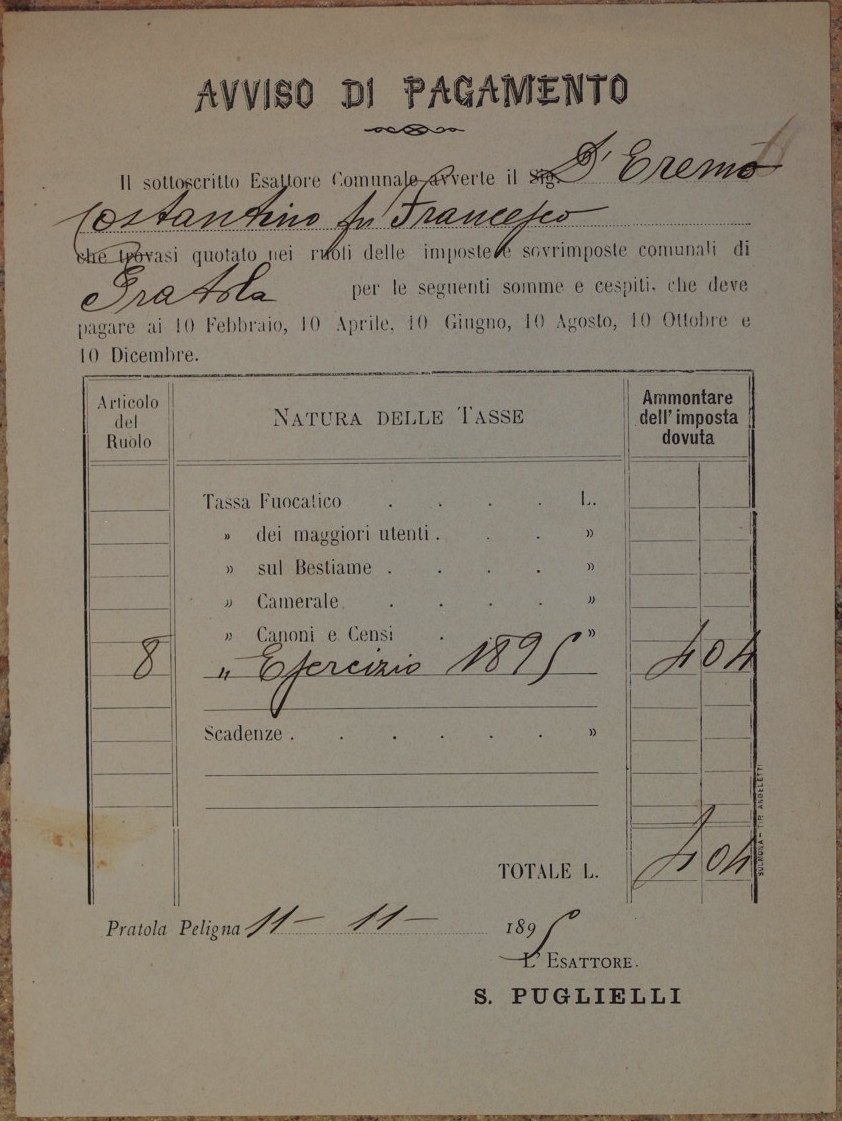 AVVISO DI PAGAMENTO
Il sottoscritto Esattore Comunale avverte il Sig. D'Eremo
Costantino fu Francesco
che trovasi quotato nei ruoli delle imposte e sovrimposte comunali di
Pratola per le seguenti somme e cespiti, che deve
pagare ai 10 Febbraio, 10 Aprile, 10 Giugno, 10 Agosto, 10 Ottobre e
10 Dicembre.
Articolo del Ruolo
NATURA DELLE TASSE
Ammontare dell'imposta dovuta
Tassa Fuocatico . . . . L.
» dei maggiori utenti . . . »
» sul Bestiame . . . . »
» Camerale . . . . »
» Canoni e Censi . . . »
8 " Esercizio 1895 4 04
Scadenze . . . . . . »
TOTALE L. 4 04
SULMONA - TIP. ANGELETTI
Pratola Peligna 11 - 11 - 1895
L'ESATTORE.
S. PUGLIELLI